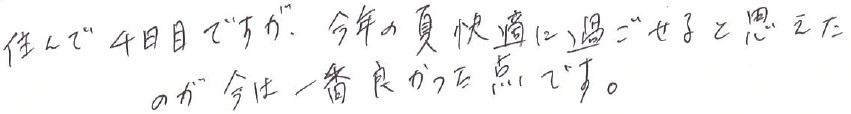 住んで4日目ですが、今年の夏快適に過ごせると思えた
のが今は一番良かった点です。